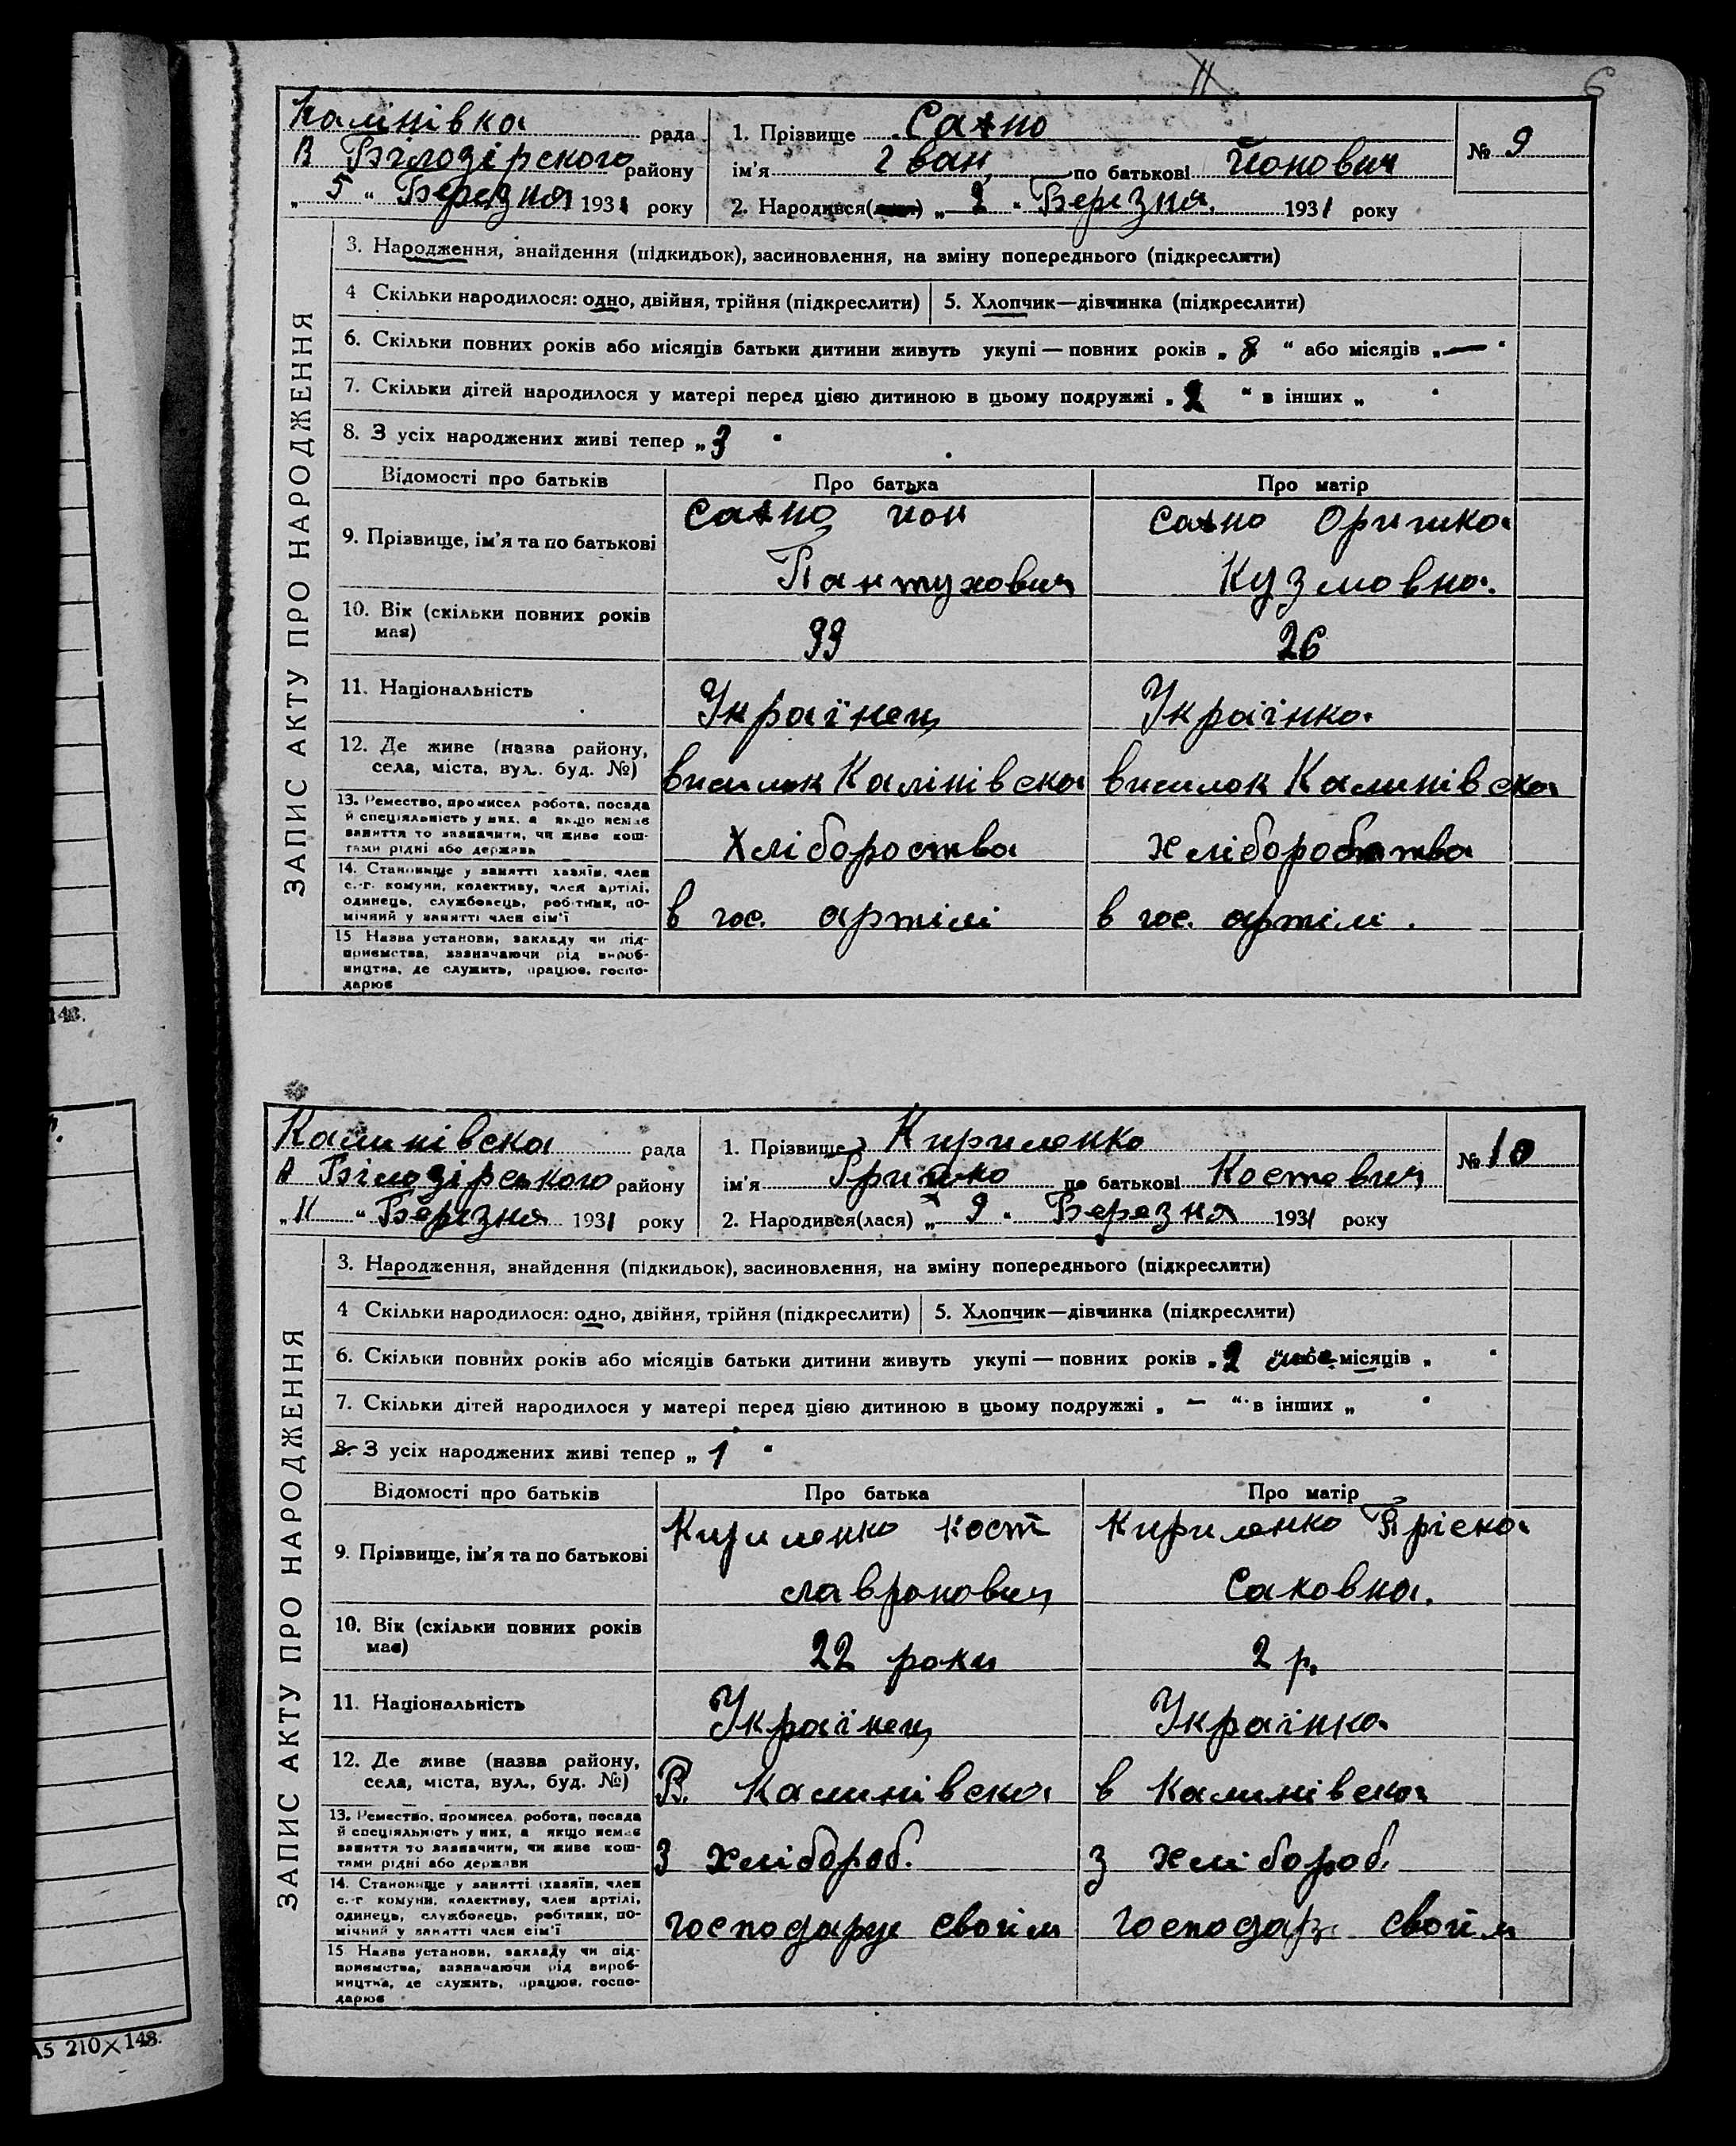 6
Калінівка рада
В Білозірского району
„ 5 “ Березня 1931 року
1. Прізвище Сахно
ім'я Іван, по батькові Йонович
2. Народився „ 2 “ Березня 1931 року
№ 9
ЗАПИС АКТУ ПРО НАРОДЖЕННЯ
3. Народження, знайдення (підкидьок), засиновлення, на зміну попереднього (підкреслити)
4 Скільки народилося: одно, двійня, трійня (підкреслити) 5. Хлопчик—дівчинка (підкреслити)
6. Скільки повних років або місяців батьки дитини живуть укупі — повних років „ 8 “ або місяців „ — “
7. Скільки дітей народилося у матері перед цією дитиною в цьому подружжі „ 2 “ в інших „ “
8. З усіх народжених живі тепер „ 3 “
Відомості про батьків Про батька Про матір
9. Прізвище, ім'я та по батькові
Сахно Йон
Пантухович
Сахно Оришка
Кузмовна.
10. Вік (скільки повних років
має)
33
26
11. Національність
Українец
Українка.
12. Де живе (назва району,
села, міста, вул. буд. №)
висилок Калінівска
висилок Калинівска
13. Ремество, промисел робота, посада
й спеціяльність у них, а якщо немає
заняття то зазначити, чи живе кош-
тами рідні або держави
Хлібороства
хліборобства
14. Становище у занятті хазяїн, член
с.-г. комуни, колективу, член артілі,
одинець, службовець, робітник, по-
мічний у занятті член сім'ї
в гос. артілі
в гос. артілі.
15 Назва установи, закладу чи під-
приємства, зазначаючи рід вироб-
ництва, де служить, працює, госпо-
дарює
148.
Калинівска рада
В Білозірського району
„ 11 “ Березня 1931 року
1. Прізвище Кириленко
ім'я Гришко по батькові Костевич
2. Народився(лася) „ 9 “ Березня 1931 року
№ 10
ЗАПИС АКТУ ПРО НАРОДЖЕННЯ
3. Народження, знайдення (підкидьок), засиновлення, на зміну попереднього (підкреслити)
4 Скільки народилося: одно, двійня, трійня (підкреслити) 5. Хлопчик—дівчинка (підкреслити)
6. Скільки повних років або місяців батьки дитини живуть укупі — повних років „ 2 місяців „ “
7. Скільки дітей народилося у матері перед цією дитиною в цьому подружжі „ — “ в інших „ “
8. З усіх народжених живі тепер „ 1 “
Відомості про батьків Про батька Про матір
9. Прізвище, ім'я та по батькові
Кириленко Кост
лавронович
Кириленко Пріска
Саковна.
10. Вік (скільки повних років
має)
22 роки
2 р.
11. Національність
Українец
Українка.
12. Де живе (назва району,
села, міста, вул., буд. №)
В. Калинівска
в Калинівска
13. Ремество, промисел робота, посада
й спеціяльність у них, а якщо немає
заняття то зазначити, чи живе кош-
тами рідні або держави
З хлібороб.
З хлібороб.
14. Становище у занятті (хазяїн, член
с.-г комуни, колективу, член артілі,
одинець, службовець, робітник, по-
мічний у занятті член сім'ї
господарує своїм
господар. своїм
15. Назва установи, закладу чи під-
приємства, зазначаючи рід вироб-
ництва, де служить, працює, госпо-
дарює
А5 210×148.